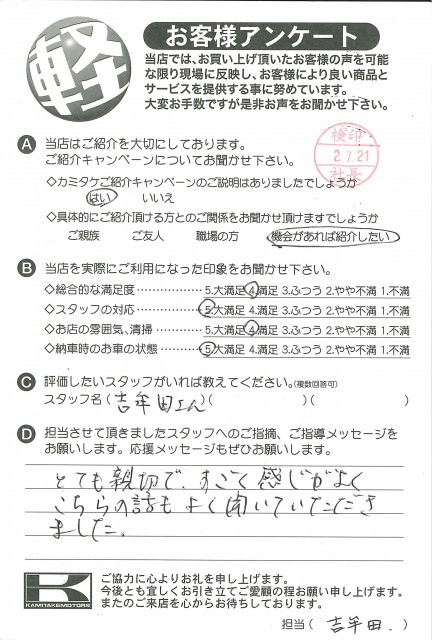 軽
お客様アンケート
当店では、お買い上げ頂いたお客様の声を可能
な限り現場に反映し、お客様により良い商品と
サービスを提供する事に努めています。
大変お手数ですが是非お声をお聞かせ下さい。
A 当店はご紹介を大切にしております。
ご紹介キャンペーンについてお聞かせ下さい。
検印
2.7.21
社長
◇カミタケご紹介キャンペーンのご説明はありましたでしょうか
はい いいえ
◇具体的にご紹介頂ける方とのご関係をお聞かせ頂けますでしょうか
ご親族 ご友人 職場の方 機会があれば紹介したい
B 当店を実際にご利用になった印象をお聞かせ下さい。
◇総合的な満足度 ・・・・・・・・・・・・・・ 5.大満足 4.満足 3.ふつう 2.やや不満 1.不満
◇スタッフの対応 ・・・・・・・・・・・・・・ 5.大満足 4.満足 3.ふつう 2.やや不満 1.不満
◇お店の雰囲気、清掃 ・・・・・・・・・・ 5.大満足 4.満足 3.ふつう 2.やや不満 1.不満
◇納車時のお車の状態 ・・・・・・・・・・ 5.大満足 4.満足 3.ふつう 2.やや不満 1.不満
C 評価したいスタッフがいれば教えてください。(複数回答可)
スタッフ名 ( 吉牟田さん )( )( )
D 担当させて頂きましたスタッフへのご指摘、ご指導メッセージを
お願いします。応援メッセージもぜひお願いします。
とても親切で、すごく感じがよく
こちらの話もよく聞いていただだき
ました。
K
KAMITAKEMOTORS
ご協力に心よりお礼を申し上げます。
今後とも宜しくお引き立てご愛顧の程お願い申し上げます。
またのご来店を心からお待ちしております。
担当 ( 吉牟田. )